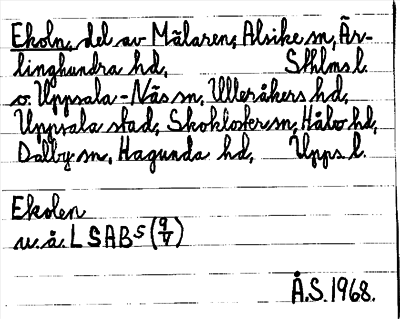 Ekoln, del av Mälaren, Alsike sn, Är-
linghundra hd, Sthlms l.
o. Uppsala-Näs sn, Ulleråkers hd,
Uppsala stad, Skokloster sn, Håbo hd,
Dalby sn, Hagunda hd, Upps. l.
Ekolen
u.å. LSAB 5 (9/V)
Å.S. 1968.